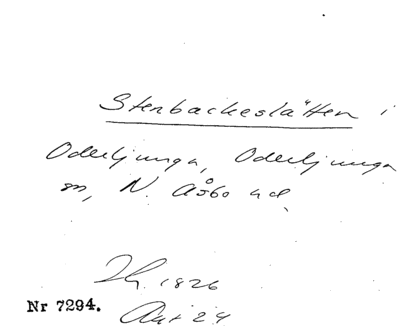 Stenbackeslätten i
Oderljunga, Oderljunga
sn, N. Åsbo hd.
1826
Nr 7294.
Akt 24